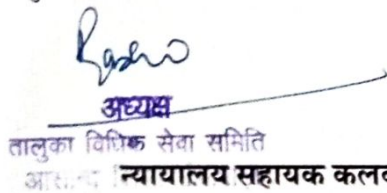 अध्यक्ष
तालुका विधिक सेवा समिति
न्यायालय सहायक कलक